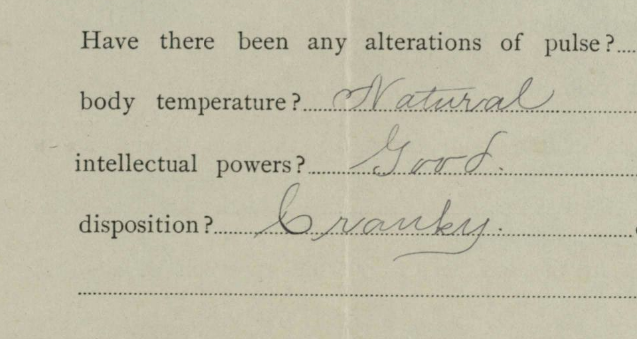 Have there been any alterations of pulse?
body temperature? Natural
intellectual powers? Good.
disposition? Cranky.